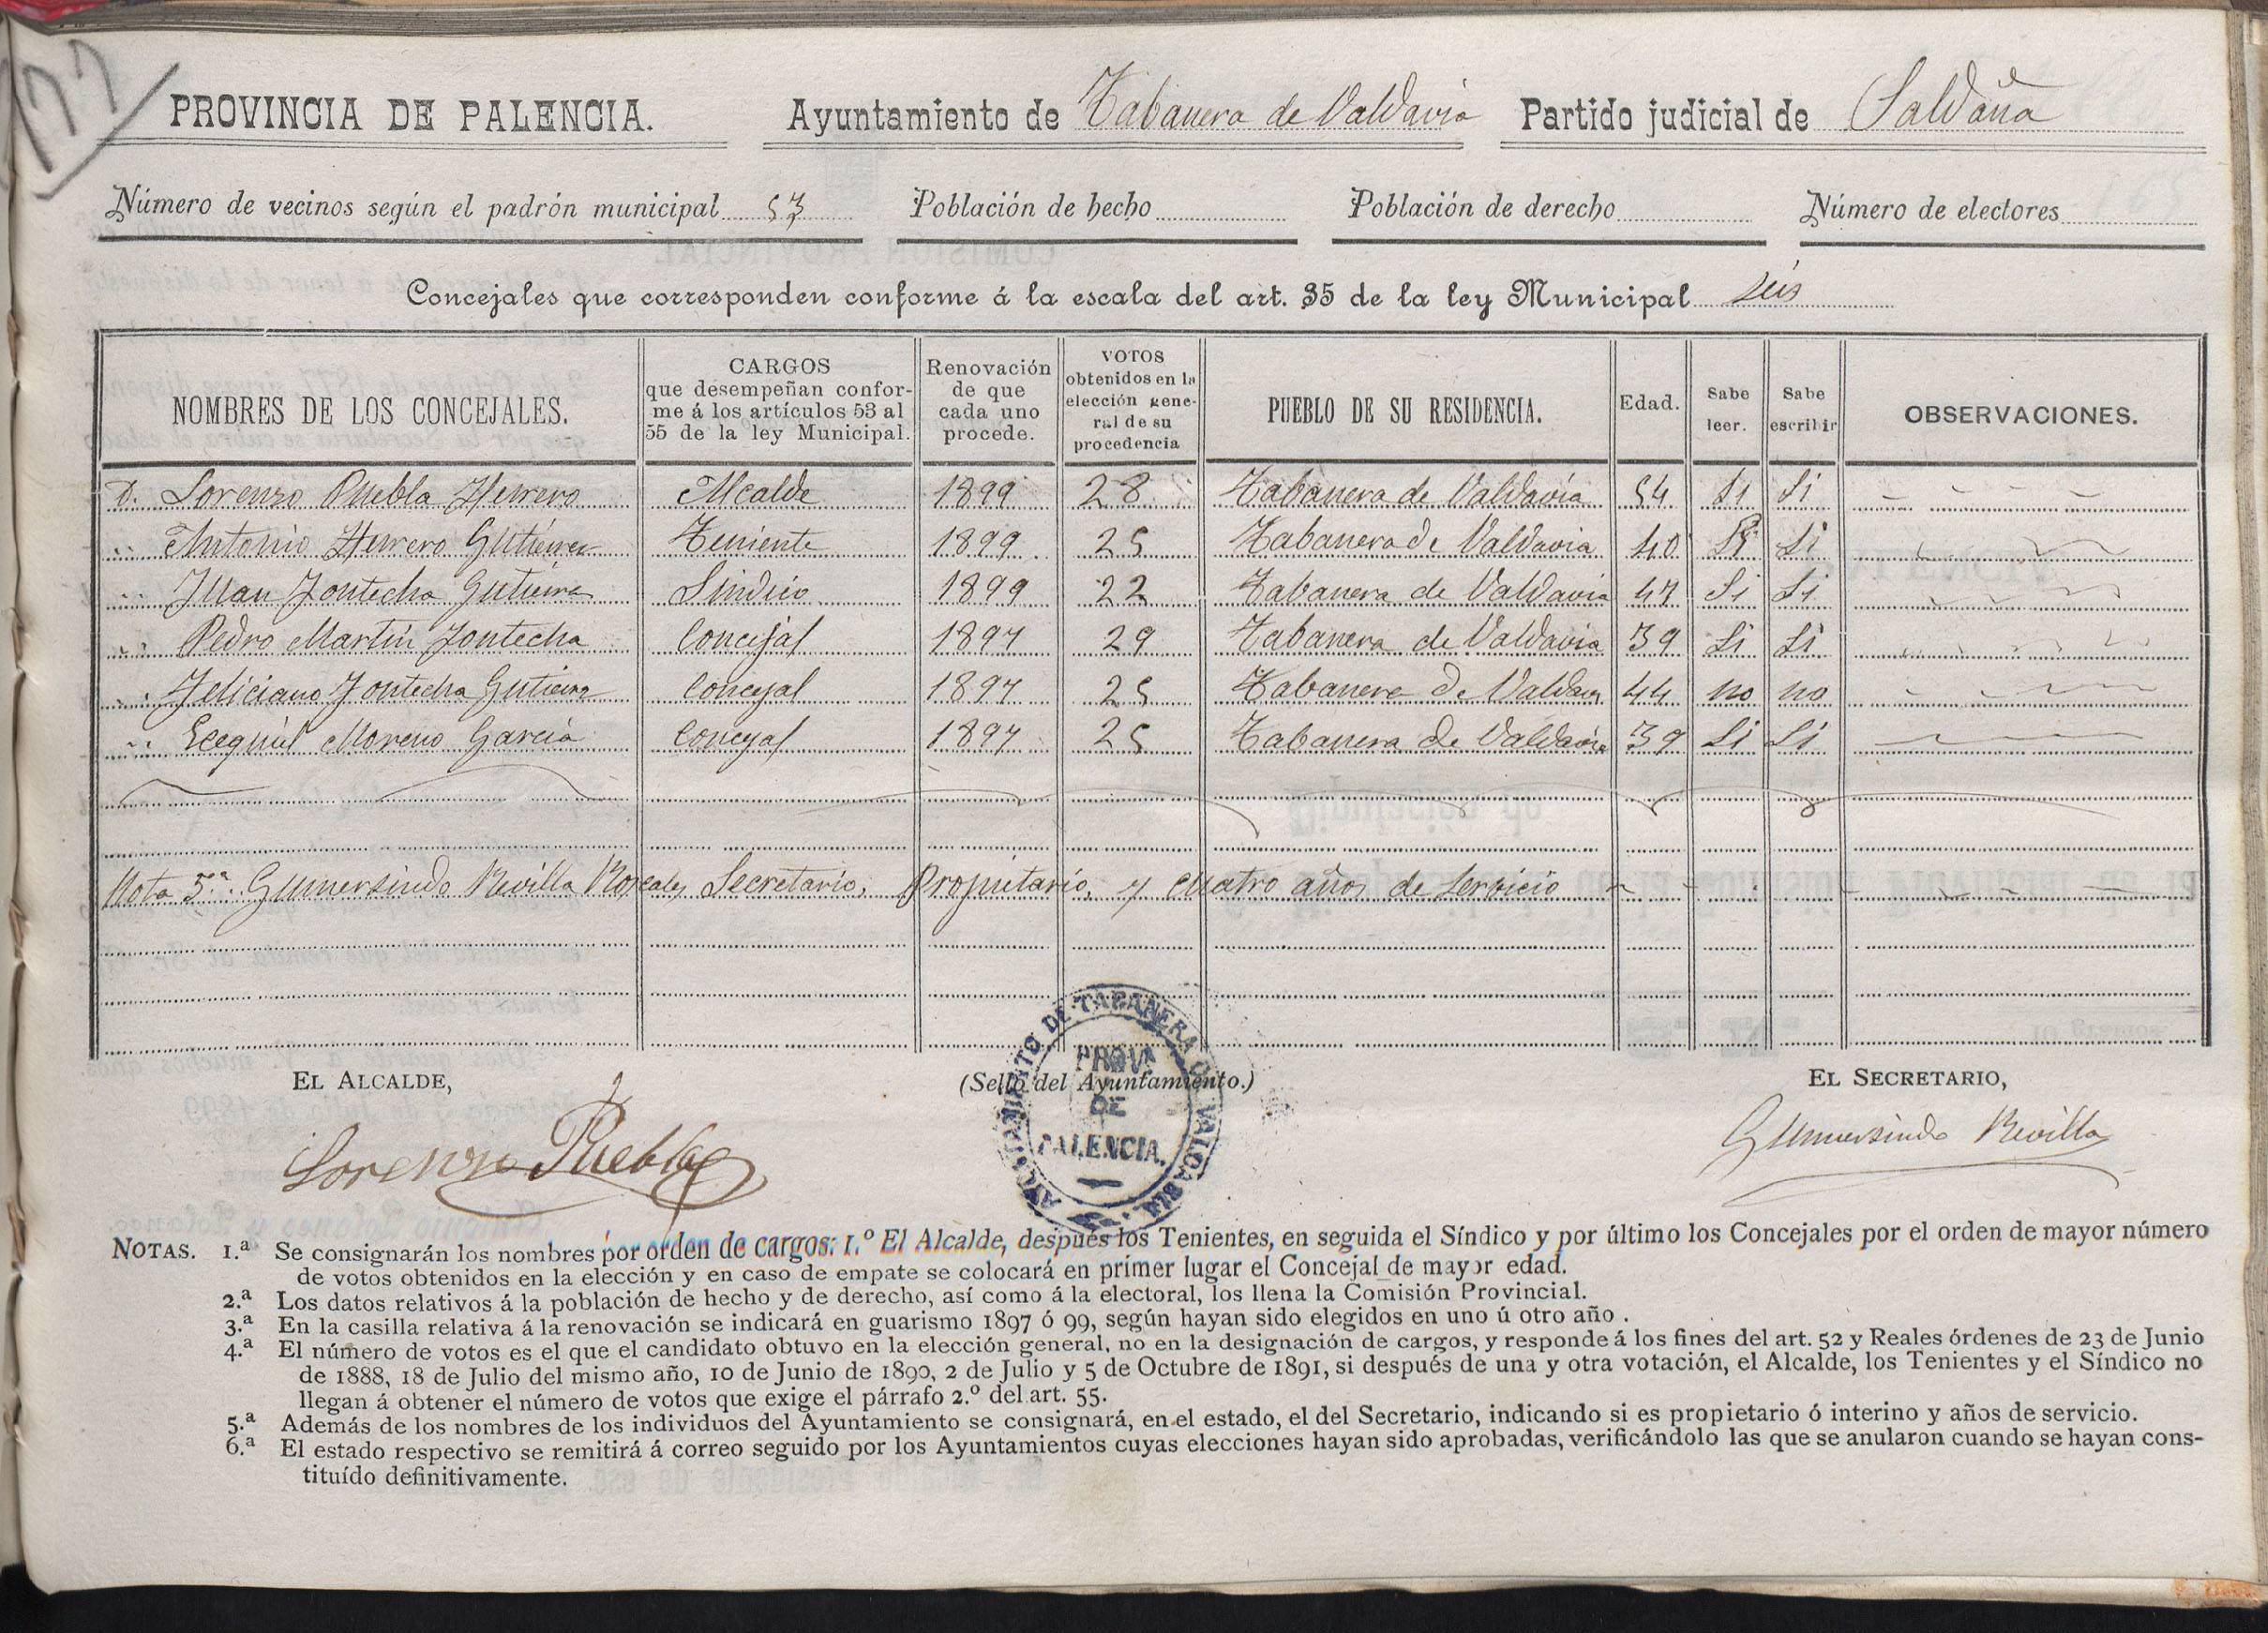 177
PROVINCIA DE PALENCIA. Ayuntamiento de Tabanera de Valdavia Partido judicial de Saldaña
Número de vecinos según el padrón municipal 53 Población de hecho Población de derecho Número de electores
Concejales que corresponden conforme á la escala del art. 35 de la ley Municipal seis
NOMBRES DE LOS CONCEJALES. CARGOS que desempeñan conforme á los artículos 53 al 55 de la ley Municipal. Renovación de que cada uno procede. VOTOS obtenidos en la elección general de su procedencia PUEBLO DE SU RESIDENCIA. Edad. Sabe leer. Sabe escribir OBSERVACIONES.
D. Lorenzo Puebla Herrero Alcalde 1899 28 Tabanera de Valdavia 54 Si Si
" Antonio Herrero Gutierrez Teniente 1899 25 Tabanera de Valdavia 40 Si Si
" Juan Fontecha Gutierrez Sindico 1899 22 Tabanera de Valdavia 47 Si Si
" Pedro Martin Fontecha Concejal 1897 29 Tabanera de Valdavia 39 Si Si
" Feliciano Fontecha Gutierrez Concejal 1897 25 Tabanera de Valdavia 44 no no
" Ecequiel Moreno Garcia Concejal 1897 25 Tabanera de Valdavia 39 Si Si
Nota 5.ª Gumersindo Revilla Secretario, Propietario, y cuatro años de servicio
EL ALCALDE, (Sello del Ayuntamiento.) EL SECRETARIO,
AYUNTAMIENTO DE TABANERA DE VALDABIA
PROVA DE PALENCIA.
Lorenzo Puebla Gumersindo Revilla
NOTAS. 1.ª Se consignarán los nombres por orden de cargos: 1.º El Alcalde, después los Tenientes, en seguida el Síndico y por último los Concejales por el orden de mayor número
de votos obtenidos en la elección y en caso de empate se colocará en primer lugar el Concejal de mayor edad.
2.ª Los datos relativos á la población de hecho y de derecho, así como á la electoral, los llena la Comisión Provincial.
3.ª En la casilla relativa á la renovación se indicará en guarismo 1897 ó 99, según hayan sido elegidos en uno ú otro año.
4.ª El número de votos es el que el candidato obtuvo en la elección general, no en la designación de cargos, y responde á los fines del art. 52 y Reales órdenes de 23 de Junio
de 1888, 18 de Julio del mismo año, 10 de Junio de 1890, 2 de Julio y 5 de Octubre de 1891, si después de una y otra votación, el Alcalde, los Tenientes y el Síndico no
llegan á obtener el número de votos que exige el párrafo 2.º del art. 55.
5.ª Además de los nombres de los individuos del Ayuntamiento se consignará, en el estado, el del Secretario, indicando si es propietario ó interino y años de servicio.
6.ª El estado respectivo se remitirá á correo seguido por los Ayuntamientos cuyas elecciones hayan sido aprobadas, verificándolo las que se anularon cuando se hayan cons-
tituído definitivamente.